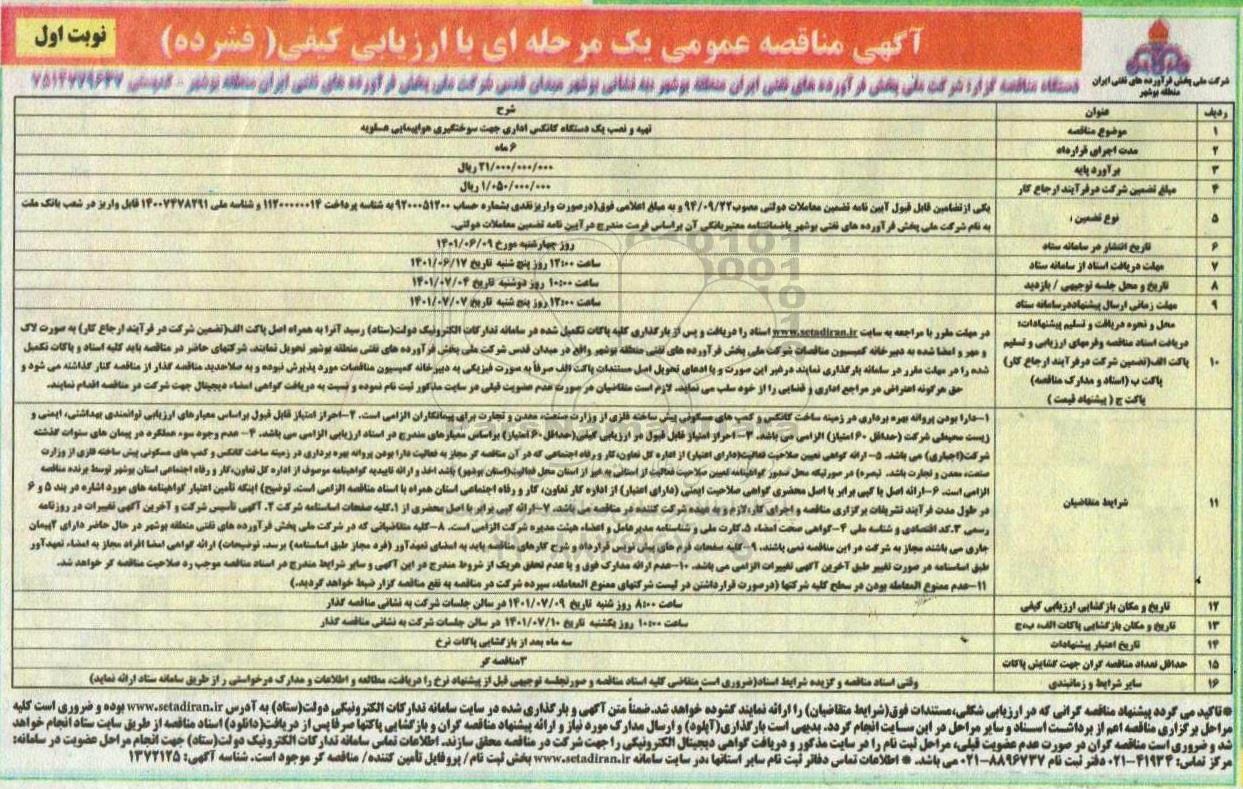 آگهی مناقصه عمومی یک مرحله ای با ارزیابی کیفی( فشرده)
نوبت اول
شرکت ملی پخش فرآورده های نفتی ایران
منطقه بوشهر
دستگاه مناقصه گزار: شرکت ملی پخش فرآورده های نفتی ایران منطقه بوشهر به نشانی بوشهر میدان قدس شرکت ملی پخش فرآورده های نفتی ایران منطقه بوشهر - کدپستی ۷۵۱۴۷۷۹۶۳۷
ردیف عنوان شرح
۱ موضوع مناقصه تهیه و نصب یک دستگاه کانکس اداری جهت سوختگیری هواپیمایی عسلویه
۲ مدت اجرای قرارداد ۶ ماه
۳ برآورد پایه ۲۱/۰۰۰/۰۰۰/۰۰۰ ریال
۴ مبلغ تضمین شرکت درفرآیند ارجاع کار ۱/۰۵۰/۰۰۰/۰۰۰ ریال
۵ نوع تضمین : یکی ازتضامین قابل قبول آیین نامه تضمین معاملات دولتی مصوب۹۴/۰۹/۲۲ و به مبلغ اعلامی فوق(درصورت واریزنقدی بشماره حساب ۹۲۰۰۰۵۱۲۰۰ به شناسه پرداخت ۱۱۲۰۰۰۰۰۰۱۴ و شناسه ملی ۱۴۰۰۷۴۷۸۲۹۱ قابل واریز در شعب بانک ملت
به نام شرکت ملی پخش فرآورده های نفتی بوشهر یاضمانتنامه معتبربانکی آن براساس فرمت مندرج درآیین نامه تضمین معاملات دولتی.
۶ تاریخ انتشار در سامانه ستاد روز چهارشنبه مورخ ۱۴۰۱/۰۶/۰۹
۷ مهلت دریافت اسناد از سامانه ستاد ساعت ۱۲:۰۰ روز پنج شنبه تاریخ ۱۴۰۱/۰۶/۱۷
۸ تاریخ و محل جلسه توجیهی / بازدید ساعت ۱۰:۰۰ روز دوشنبه تاریخ ۱۴۰۱/۰۷/۰۴
۹ مهلت زمانی ارسال پیشنهاددرسامانه ستاد ساعت ۱۲:۰۰ روز پنج شنبه تاریخ ۱۴۰۱/۰۷/۰۷
۱۰ محل و نحوه دریافت و تسلیم پیشنهادات:
دریافت اسناد مناقصه وفرمهای ارزیابی و تسلیم
پاکت الف(تضمین شرکت درفرآیند ارجاع کار)
پاکت ب (اسناد و مدارک مناقصه)
پاکت ج ( پیشنهاد قیمت )
در مهلت مقرر با مراجعه به سایت www.setadiran.ir اسناد را دریافت و پس از بارگذاری کلیه پاکات تکمیل شده در سامانه تدارکات الکترونیک دولت(ستاد) رسید آنرا به همراه اصل پاکت الف(تضمین شرکت در فرآیند ارجاع کار) به صورت لاک
و مهر و امضا شده به دبیرخانه کمیسیون مناقصات شرکت ملی پخش فرآورده های نفتی منطقه بوشهر واقع در میدان قدس شرکت ملی پخش فرآورده های نفتی منطقه بوشهر تحویل نمایند. شرکتهای حاضر در مناقصه باید کلیه اسناد و پاکات تکمیل
شده را در مهلت مقرر در سامانه بارگذاری نمایند درغیر این صورت و یا ادعای تحویل اصل مستندات پاکت الف صرفاً به صورت فیزیکی به دبیرخانه کمیسیون مناقصات مورد پذیرش نبوده و به صلاحدید مناقصه گذار از مناقصه کنار گذاشته می شود و
حق هرگونه اعتراض در مراجع اداری و قضایی را از خود سلب می نماید. لازم است متقاضیان در صورت عدم عضویت قبلی در سایت مذکور ثبت نام نموده و نسبت به دریافت گواهی امضاء دیجیتال جهت شرکت در مناقصه اقدام نمایند.
۱۱ شرایط متقاضیان
۱-دارا بودن پروانه بهره برداری در زمینه ساخت کانکس و کمپ های مسکونی پیش ساخته فلزی از وزارت صنعت، معدن و تجارت برای پیمانکاران الزامی است. ۲-احراز امتیاز قابل قبول براساس معیارهای ارزیابی توانمندی بهداشتی، ایمنی و
زیست محیطی شرکت (حداقل ۶۰ امتیاز) الزامی می باشد. ۳- احراز امتیاز قابل قبول در ارزیابی کیفی(حداقل ۶۰ امتیاز) براساس معیارهای مندرج در اسناد ارزیابی الزامی می باشد. ۴- عدم وجود سوء عملکرد در پیمان های سنوات گذشته
شرکت(اجباری) می باشد. ۵- ارائه گواهی تعیین صلاحیت فعالیت(دارای اعتبار) از اداره کل تعاون،کار و رفاه اجتماعی که در آن مناقصه گر مجاز به فعالیت دارا بودن پروانه بهره برداری در زمینه ساخت کانکس و کمپ های مسکونی پیش ساخته فلزی از وزارت
صنعت، معدن و تجارت باشد. تبصره) در صورتیکه محل صدور گواهینامه تعیین صلاحیت فعالیت از استانی به غیر از استان محل فعالیت(استان بوشهر) باشد اخذ و ارائه تاییدیه گواهینامه موصوف از اداره کل تعاون،کار و رفاه اجتماعی استان بوشهر توسط برنده مناقصه
الزامی است. ۶-ارائه اصل یا کپی برابر با اصل محضری گواهی صلاحیت ایمنی (دارای اعتبار) از اداره کار تعاون، کار و رفاه اجتماعی استان همراه با اسناد مناقصه الزامی است. توضیح) اینکه تأمین اعتبار گواهینامه های مورد اشاره در بند ۵ و ۶
در طول مدت فرآیند تشریفات برگزاری مناقصه و اجرای کار،لازم و به عهده شرکت کننده در مناقصه می باشد. ۷-ارائه کپی برابر با اصل محضری از ۱.کلیه صفحات اساسنامه شرکت ۲. آگهی تأسیس شرکت و آخرین آگهی تغییرات در روزنامه
رسمی ۳.کد اقتصادی و شناسه ملی ۴-گواهی صحت امضاء ۵.کارت ملی و شناسنامه مدیرعامل و اعضاء هیئت مدیره شرکت الزامی است. ۸-کلیه متقاضیانی که در شرکت ملی پخش فرآورده های نفتی منطقه بوشهر در حال حاضر دارای ۲پیمان
جاری می باشند مجاز به شرکت در این مناقصه نمی باشند. ۹-کلیه صفحات فرم های پیش نویس قرارداد و شرح کارهای مناقصه باید به امضای تعهدآور (فرد مجاز طبق اساسنامه) برسد. توضیحات) ارائه گواهی امضا افراد مجاز به امضاء تعهدآور
طبق اساسنامه در صورت تغییر طبق آخرین آگهی تغییرات الزامی می باشد. ۱۰-عدم ارائه مدارک فوق و یا عدم تحقق هریک از شروط مندرج در این آگهی و سایر شرایط مندرج در اسناد مناقصه موجب رد صلاحیت مناقصه گر خواهد شد.
۱۱-عدم ممنوع المعامله بودن در سطح کلیه شرکتها (درصورت قرارداشتن در لیست شرکتهای ممنوع المعامله، سپرده شرکت در مناقصه به نفع مناقصه گزار ضبط خواهد گردید.)
۱۲ تاریخ و مکان بازگشایی ارزیابی کیفی ساعت ۸:۰۰ روز شنبه تاریخ ۱۴۰۱/۰۷/۰۹ در سالن جلسات شرکت به نشانی مناقصه گذار
۱۳ تاریخ و مکان بازگشایی پاکات الف، ب،ج ساعت ۱۰:۰۰ روز یکشنبه تاریخ ۱۴۰۱/۰۷/۱۰ در سالن جلسات شرکت به نشانی مناقصه گذار
۱۴ تاریخ اعتبار پیشنهادات سه ماه بعد از بازگشایی پاکات نرخ
۱۵ حداقل تعداد مناقصه گران جهت گشایش پاکات ۳مناقصه گر
۱۶ سایر شرایط و زمانبندی وفق اسناد مناقصه و گزیده شرایط اسناد(ضروری است متقاضی کلیه اسناد مناقصه و صورتجلسه توجیهی قبل از پیشنهاد نرخ را دریافت، مطالعه و اطلاعات و مدارک درخواستی را از طریق سامانه ستاد ارائه نماید)
*تاکید می گردد پیشنهاد مناقصه گرانی که در ارزیابی شکلی،مستندات فوق(شرایط متقاضیان) را ارائه نمایند گشوده خواهد شد.ضمناً متن آگهی و بارگذاری شده در سایت سامانه تدارکات الکترونیکی دولت(ستاد) به آدرس www.setadiran.ir بوده و ضروری است کلیه
مراحل برگزاری مناقصه اعم از برداشت اسناد و سایر مراحل در این سایت انجام گردد. بدیهی است بارگذاری(آپلود) و ارسال مدارک مورد نیاز و ارائه پیشنهاد مناقصه گران و بازگشایی پاکتها صرفا پس از دریافت(دانلود) اسناد مناقصه از طریق سایت ستاد انجام خواهد
شد و ضروری است مناقصه گران در صورت عدم عضویت قبلی، مراحل ثبت نام را در سایت مذکور و دریافت گواهی دیجیتال الکترونیکی را جهت شرکت در مناقصه محقق سازند. اطلاعات تماس سامانه تدارکات الکترونیک دولت(ستاد) جهت انجام مراحل عضویت در سامانه:
مرکز تماس: ۴۱۹۳۴-۰۲۱ دفتر ثبت نام ۸۸۹۶۷۳۷-۰۲۱ می باشد. * اطلاعات تماس دفاتر ثبت نام سایر استانها ،در سایت سامانه www.setadiran.ir بخش ثبت نام/ پروفایل تأمین کننده/ مناقصه گر موجود است. شناسه آگهی: ۱۳۷۲۱۲۵